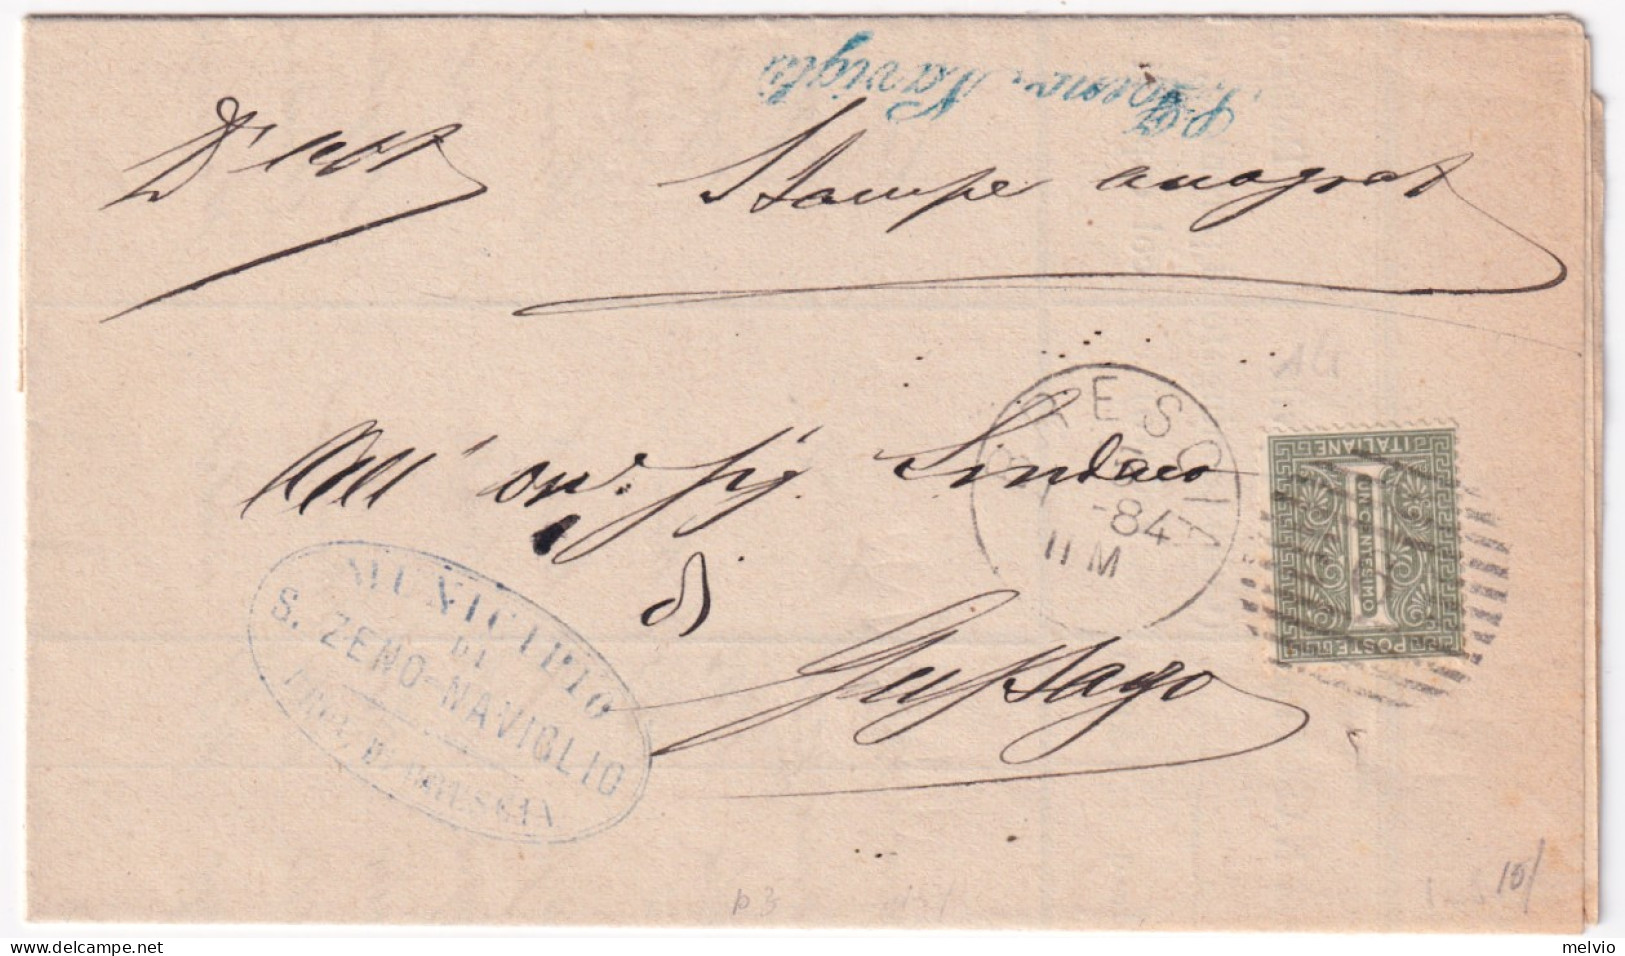 S. Zeno Naviglio
D'uff
Stampe anagraf
All' on. Sig. Sindaco
di
Gussago
BRESCIA
-84
11 M
MUNICIPIO
DI
S. ZENO-NAVIGLIO
PROV. DI BRESCIA
POSTE ITALIANE
UN CENTESIMO
1
p 3
10/
melvio